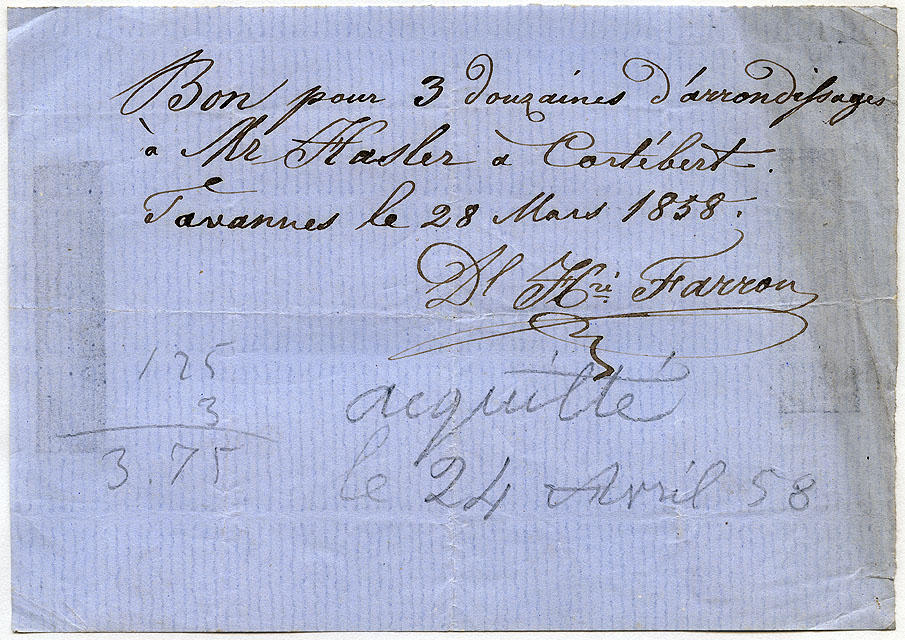 Bon pour 3 douzaines d'arrondissages
à Mr Hasler à Cortébert.
Tavannes le 28 Mars 1858.
Dl Hri Farron
125
3
3.75
acquitté
le 24 Avril 58